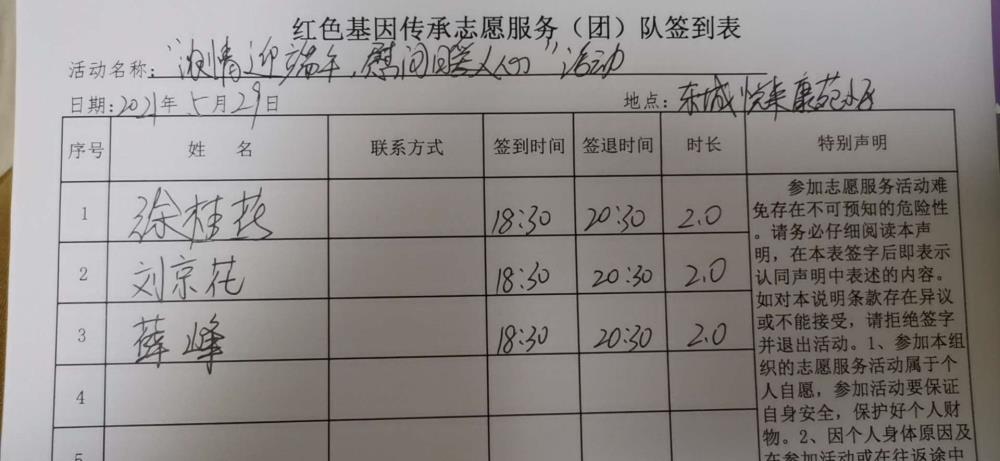 红色基因传承志愿服务（团）队签到表
活动名称：“浓情迎端午，慰问暖人心”活动
日期：2021年5月29日 地点：东城悦来康苑小区
序号 姓 名 联系方式 签到时间 签退时间 时长 特别声明
1 徐桂 18:30 20:30 2.0
2 刘京花 18:30 20:30 2.0
3 薛峰 18:30 20:30 2.0
4
5
参加志愿服务活动难
免存在不可预知的危险性
。请务必仔细阅读本声
明，在本表签字后即表示
认同声明中表述的内容。
如对本说明条款存在异议
或不能接受，请拒绝签字
并退出活动。1、参加本组
织的志愿服务活动属于个
人自愿，参加活动要保证
自身安全，保护好个人财
物。2、因个人身体原因及
在参加活动或在往返途中